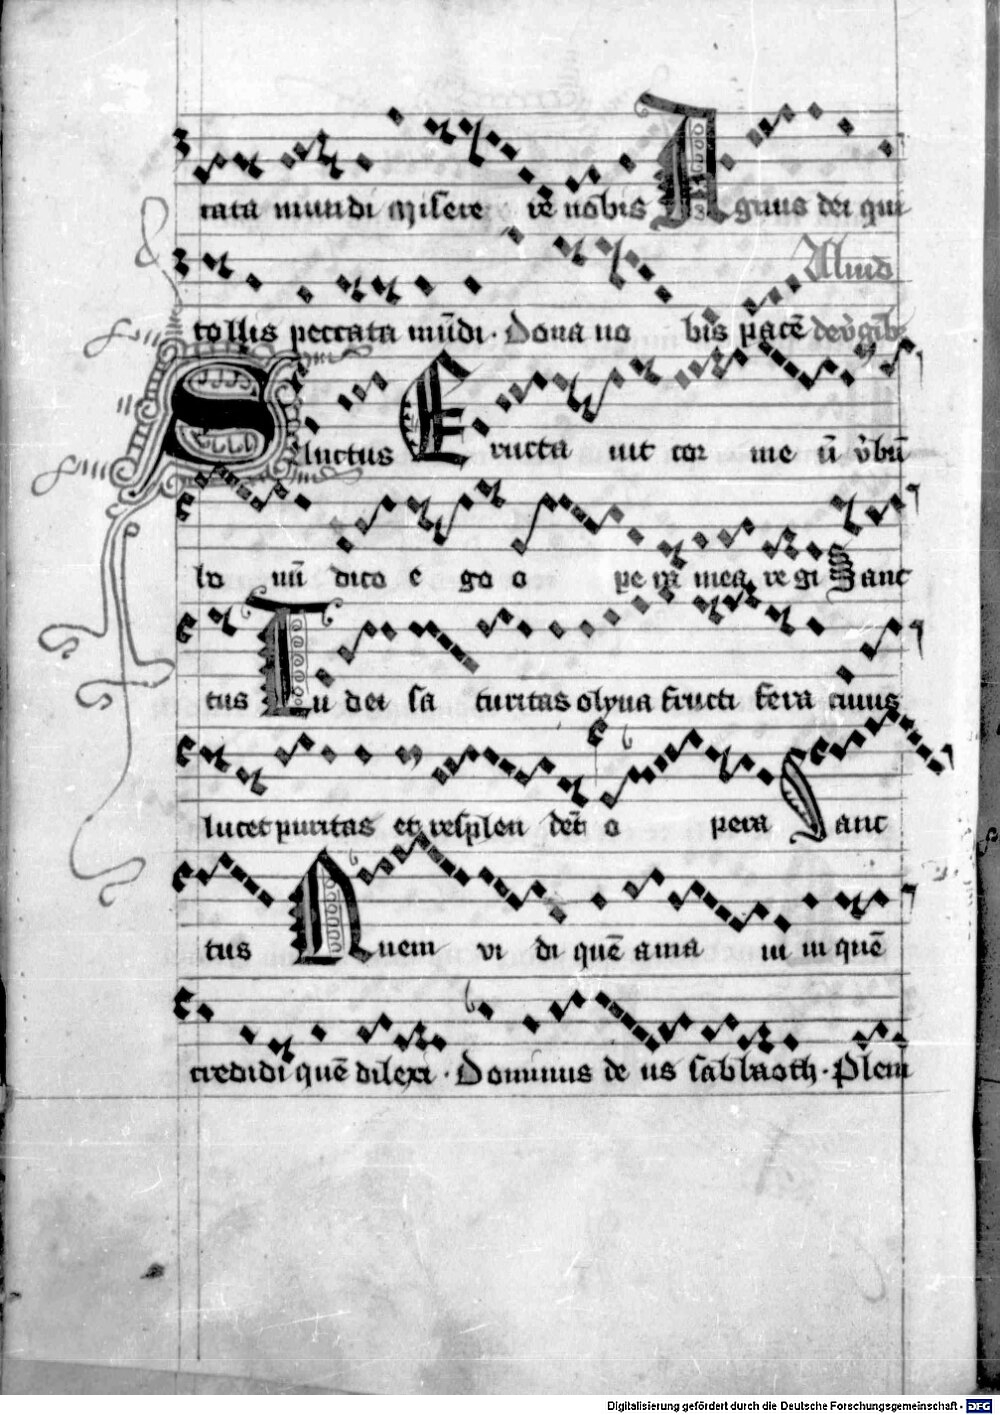 cata mundi miserere re nobis Agnus dei qui
Aliud
tollis peccata mūdi · Dona no bis pacē de v̓gīb
Sanctus Eructa uit cor me ū v̓bū
bo nū dico e go o pe ra mea re gi Sanc
tus Lu dei sa turitas olyua fructi fera cuius
lucet puritas et resplen dēt o pera Sanc
tus Quem vi di quē ama ui in quē
credidi quē dilexi · Dominus de us sabbaoth · Pleni
Digitalisierung gefördert durch die Deutsche Forschungsgemeinschaft - DFG